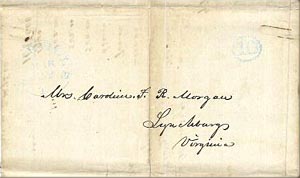 10
Mrs. Caroline. F. R. Morgan
Lynchburg
Virginia